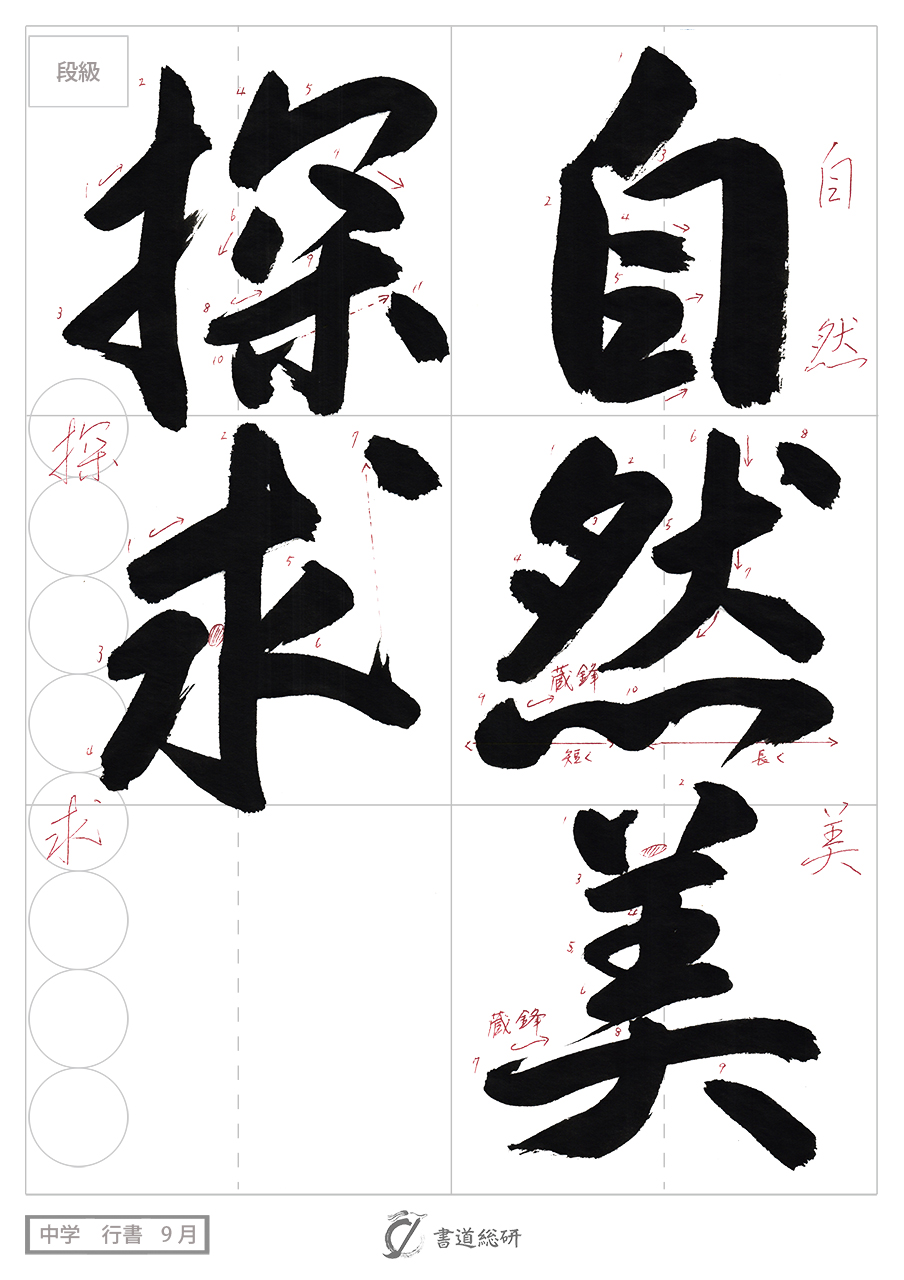 自然美
探求
自
然
美
探
求
蔵鋒
短く
長く
蔵鋒
段級
中学 行書 9月
書道総研